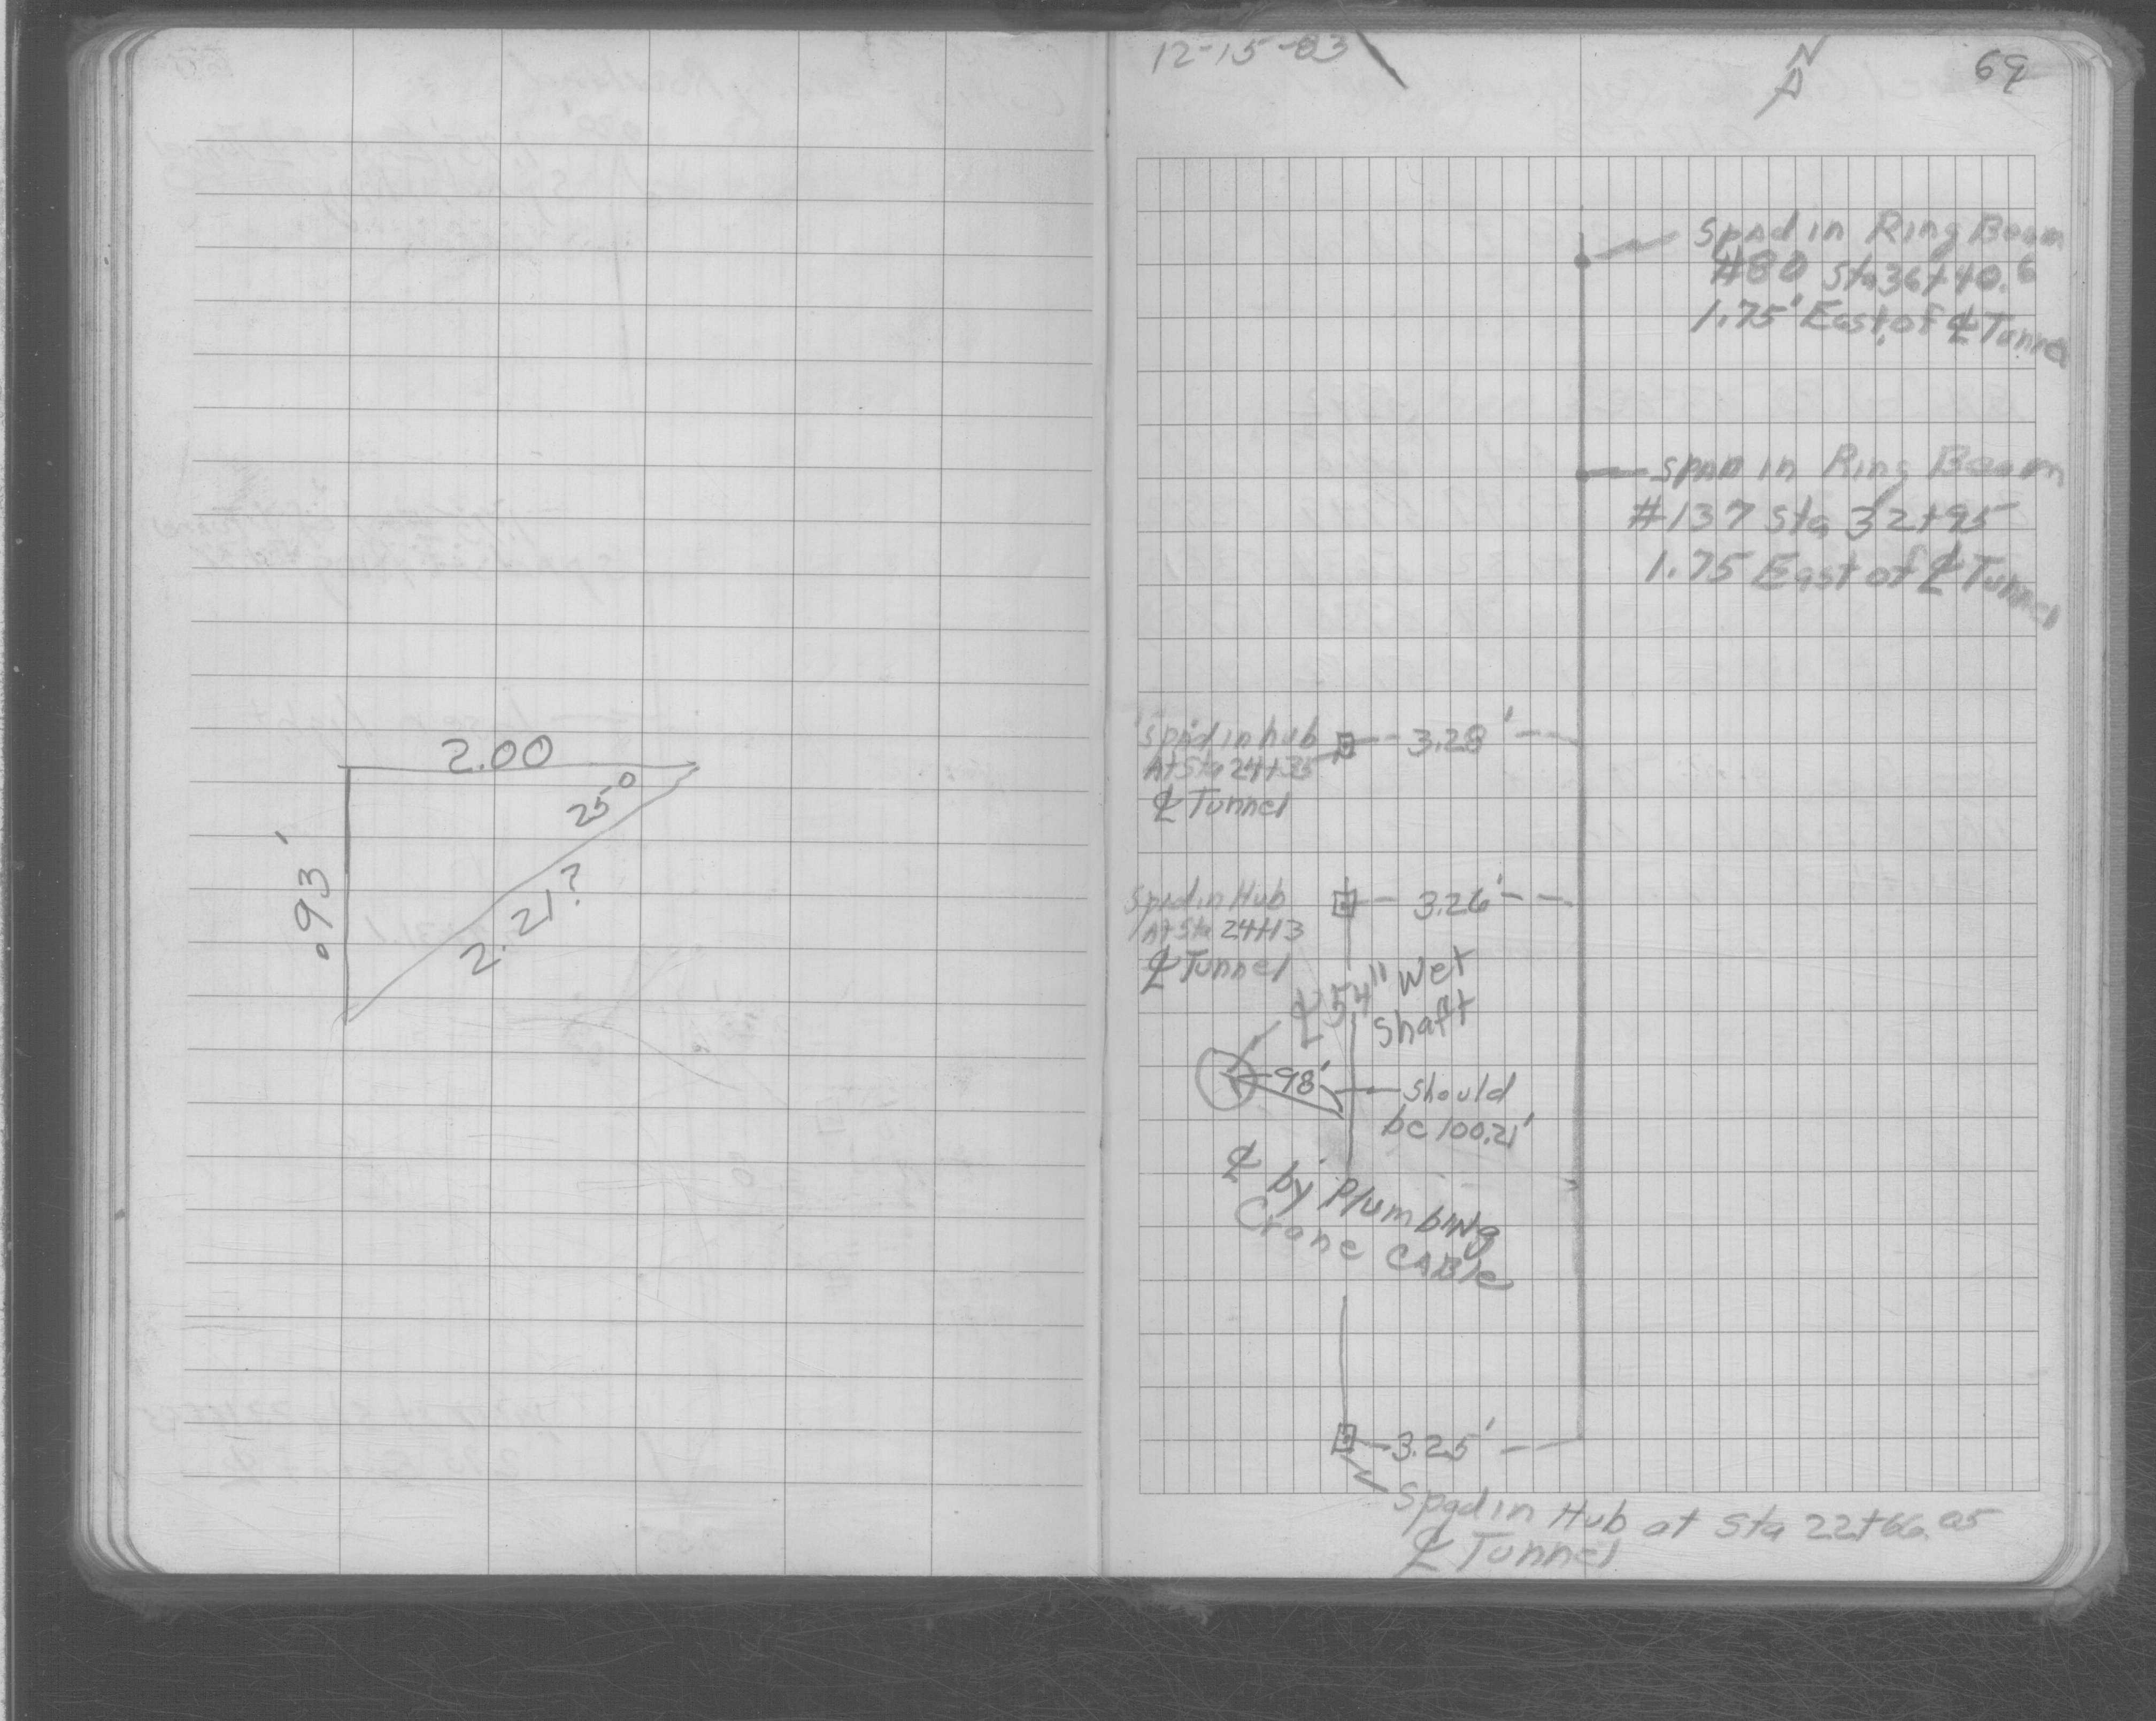 2.00
25°
.93'
2.21?
12-15-83
N
69
Spad in Ring Beam
#80 Sta 36+40.6
1.75' East of ℄ Tunnel
Spad in Ring Beam
#137 Sta 32+95
1.75 East of ℄ Tunnel
Spad in hub
At Sta 24+35
℄ Tunnel
3.28'
Spad in Hub
At Sta 24+13
℄ Tunnel
3.26'
℄ 54" Wet
Shaft
98'
Should
be 100.21'
℄ by Plumbing
Crane CABle
3.25'
Spad in Hub at Sta 22+66.05
℄ Tunnel